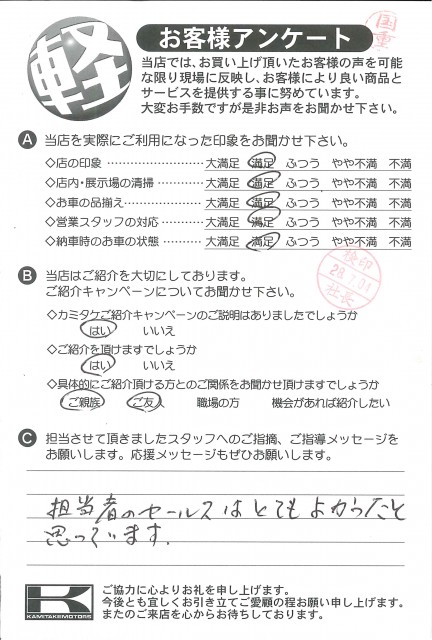 軽
お客様アンケート
当店では、お買い上げ頂いたお客様の声を可能
な限り現場に反映し、お客様により良い商品と
サービスを提供する事に努めています。
大変お手数ですが是非お声をお聞かせ下さい。
国重
A 当店を実際にご利用になった印象をお聞かせ下さい。
◇店の印象 ………………… 大満足 満足 ふつう やや不満 不満
◇店内・展示場の清掃 ………… 大満足 満足 ふつう やや不満 不満
◇お車の品揃え ……………… 大満足 満足 ふつう やや不満 不満
◇営業スタッフの対応 ………… 大満足 満足 ふつう やや不満 不満
◇納車時のお車の状態 ………… 大満足 満足 ふつう やや不満 不満
検印
28.7.04
社長
B 当店はご紹介を大切にしております。
ご紹介キャンペーンについてお聞かせ下さい。
◇カミタケご紹介キャンペーンのご説明はありましたでしょうか
はい いいえ
◇ご紹介を頂けますでしょうか
はい いいえ
◇具体的にご紹介頂ける方とのご関係をお聞かせ頂けますでしょうか
ご親族 ご友人 職場の方 機会があれば紹介したい
C 担当させて頂きましたスタッフへのご指摘、ご指導メッセージを
お願いします。応援メッセージもぜひお願いします。
担当者のセールスはとてもよかったと
思っています.
K
KAMITAKEMOTORS
ご協力に心よりお礼を申し上げます。
今後とも宜しくお引き立てご愛顧の程お願い申し上げます。
またのご来店を心からお待ちしております。